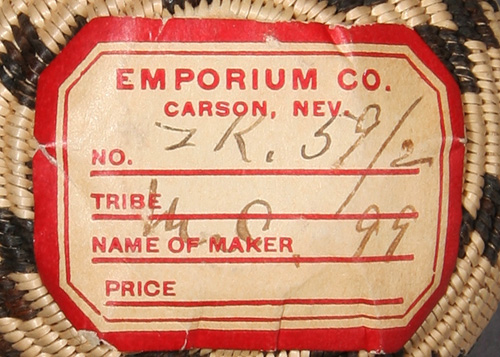 EMPORIUM CO.
CARSON, NEV.
NO. K. 59/2
TRIBE
NAME OF MAKER 99
PRICE